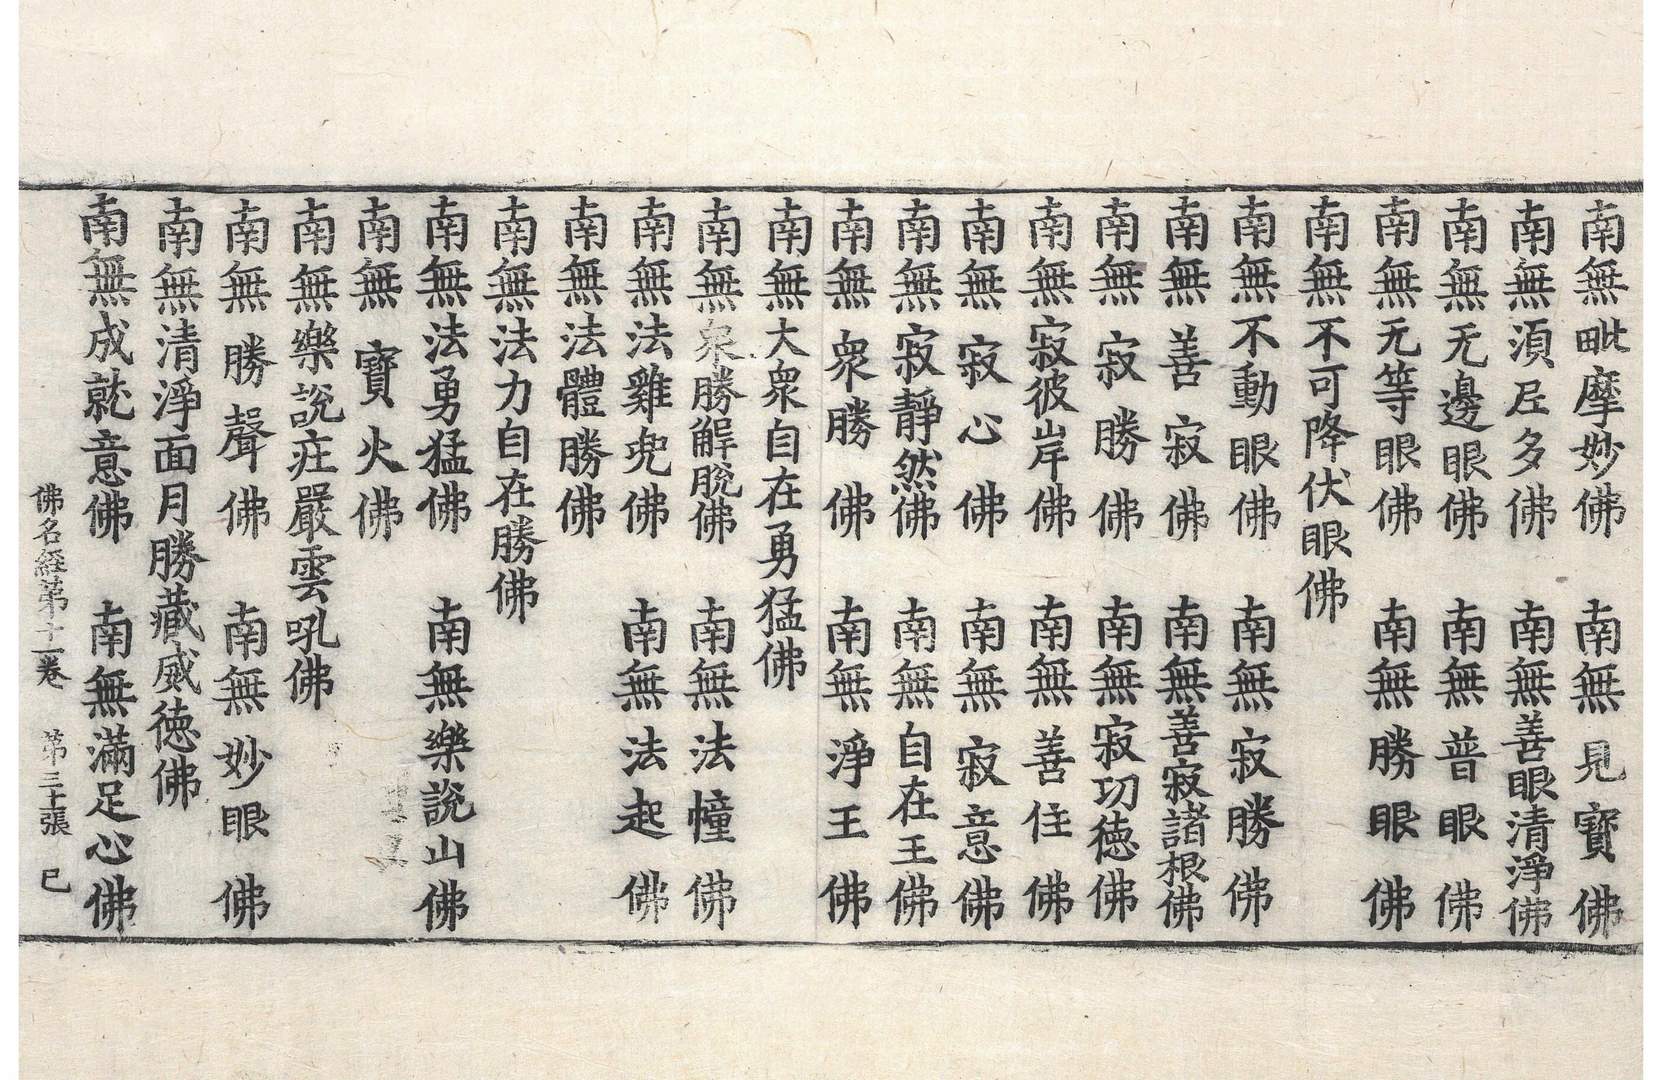 南無毗摩妙佛　南無見寶佛
南無湏𡰱多佛　南無善眼清淨佛
南無无邊眼佛　南無普眼佛
南無无等眼佛　南無勝眼佛
南無不可降伏眼佛
南無不動眼佛　南無寂勝佛
南無善寂佛　南無善寂諸根佛
南無寂勝佛　南無寂功徳佛
南無寂彼岸佛　南無善住佛
南無寂心佛　南無寂意佛
南無寂靜然佛　南無自在王佛
南無衆勝佛　南無淨王佛
南無大衆自在勇猛佛
南無衆勝解脫佛　南無法幢佛
南無法雞兜佛　南無法起佛
南無法體勝佛
南無法力自在勝佛
南無法勇猛佛　南無樂說山佛
南無寶火佛
南無樂說疘嚴雲吼佛
南無勝聲佛　南無妙眼佛
南無清淨面月勝藏威徳佛
南無成就意佛　南無滿足心佛
佛名經第十一卷　第三十張　巳